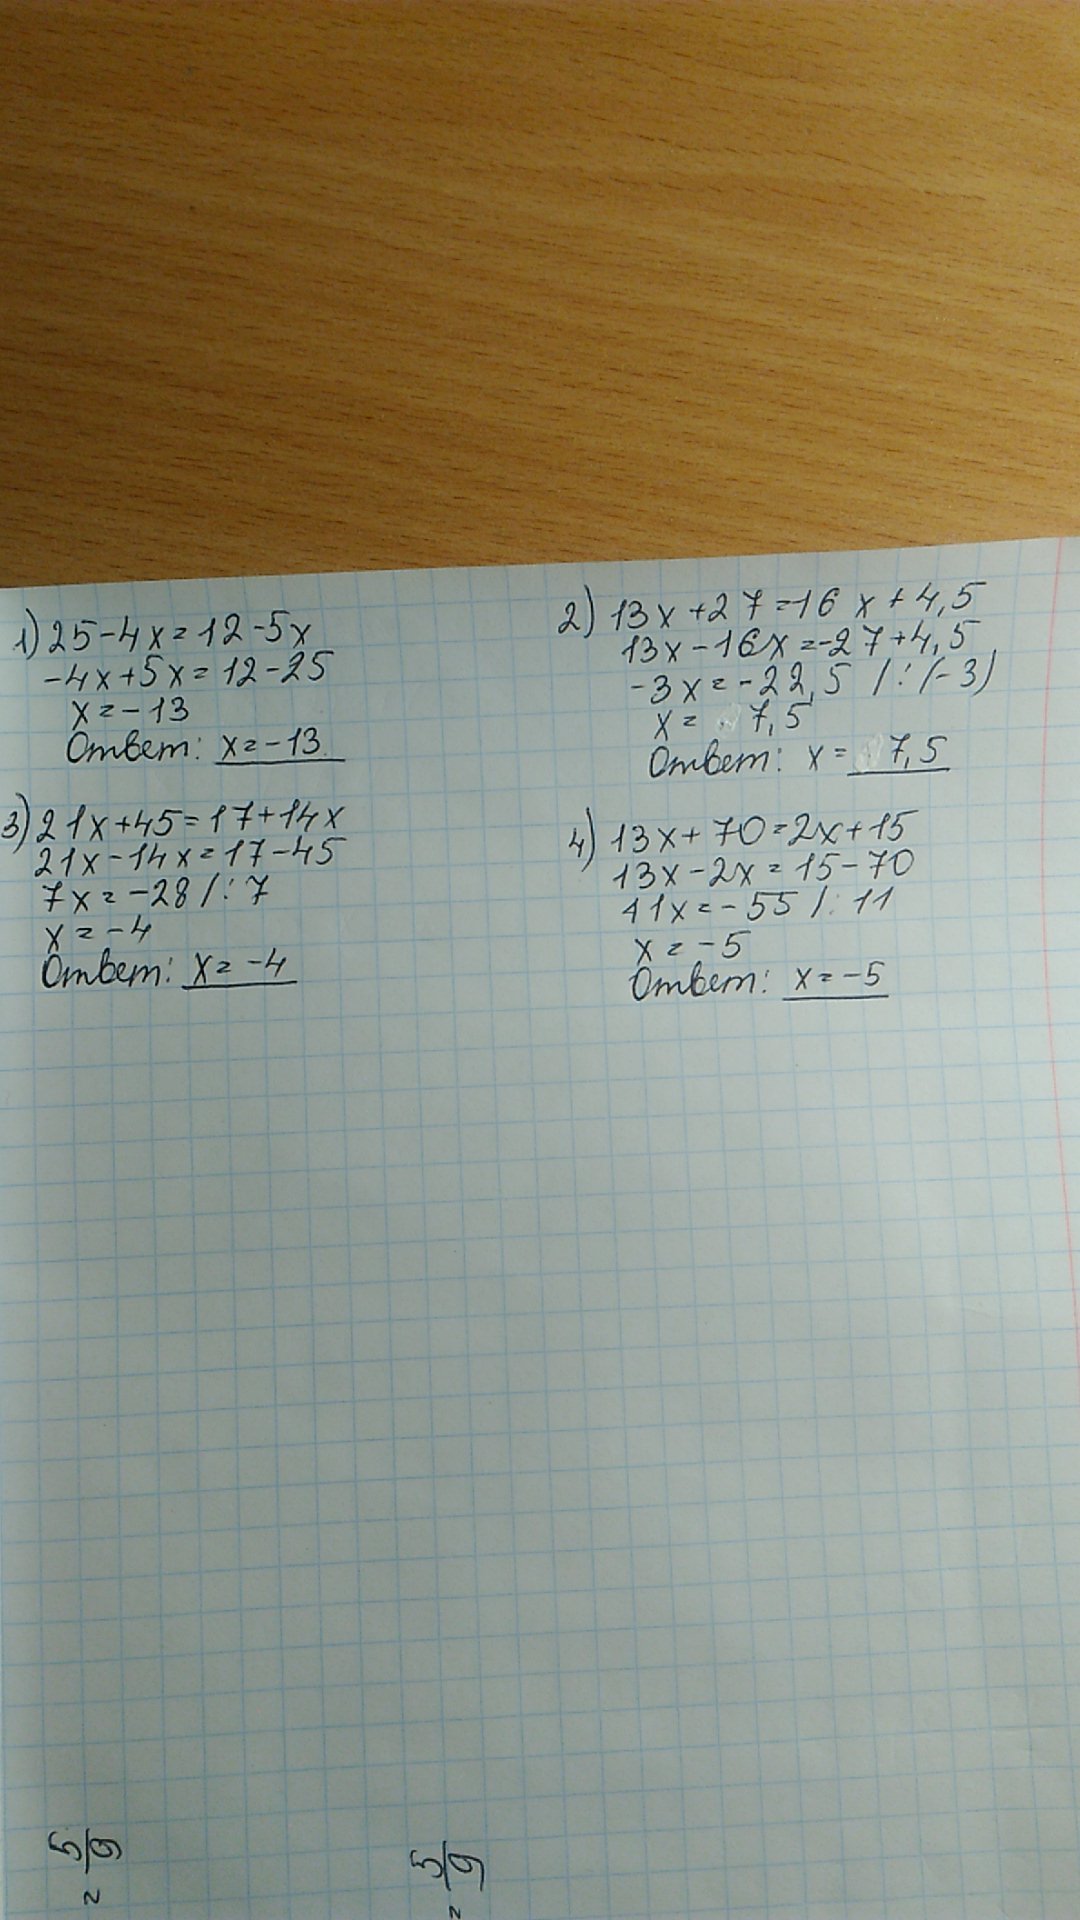 1) 25-4x=12-5x
-4x+5x=12-25
x=-13
Ответ: x=-13
2) 13x+27=16x+4,5
13x-16x=-27+4,5
-3x=-22,5 /:(-3)
x= 7,5
Ответ: x= 7,5
3) 21x+45=17+14x
21x-14x=17-45
7x=-28/:7
x=-4
Ответ: x=-4
4) 13x+70=2x+15
13x-2x=15-70
11x=-55 /:11
x=-5
Ответ: x=-5
= 5/9
= 5/9